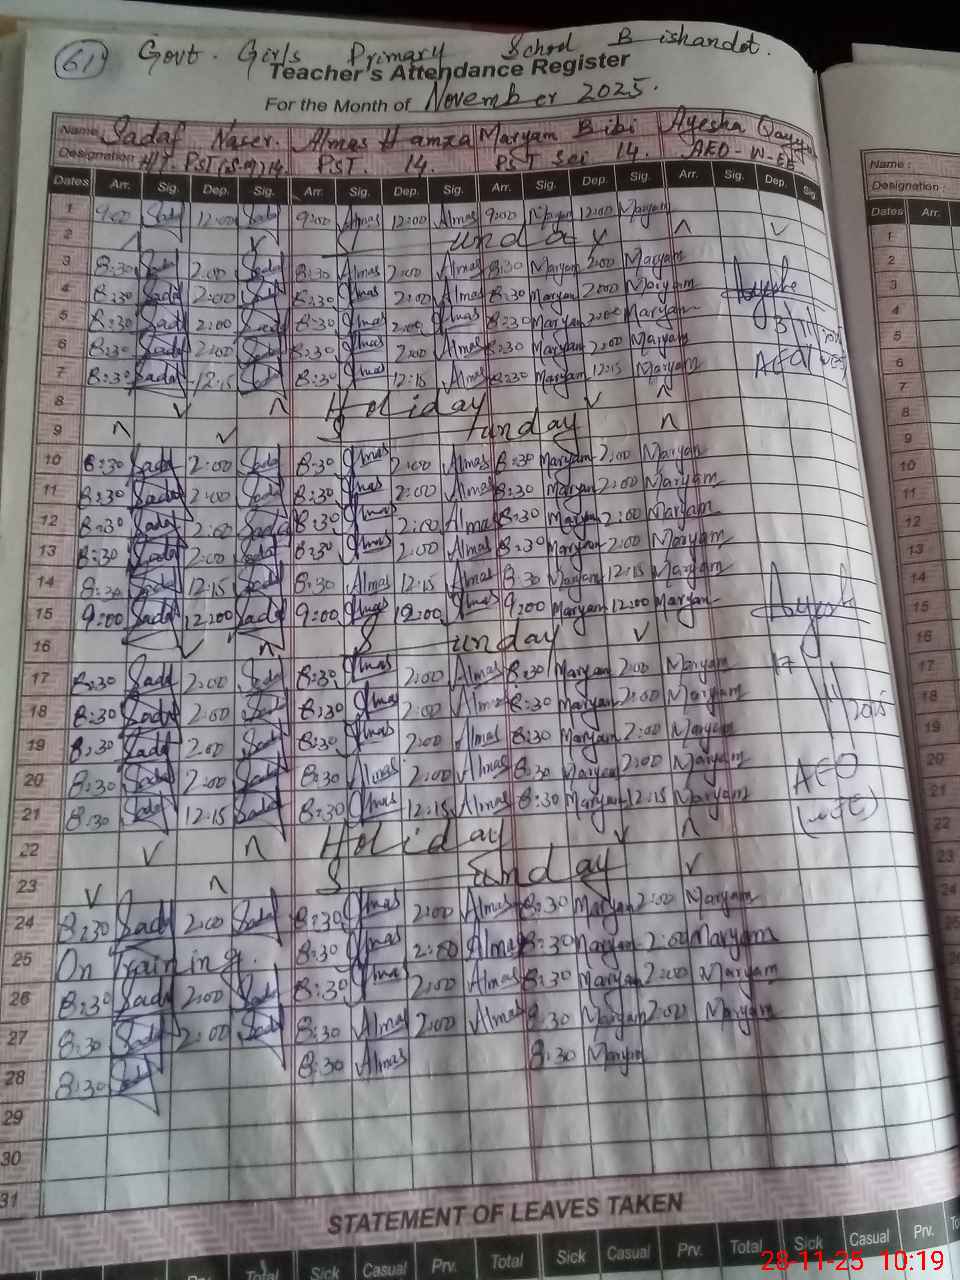 61 Govt. Girls Primary School Bishandot.
Teacher's Attendance Register
For the Month of November 2025.
Name Sadaf Naser. Almas Hamza Maryam Bibi Ayesha Qayy Name :
Designation H/T PST (S.M) 14. PST. 14. PST Sci 14. AEO-W-EE Designation :
Dates Arr. Sig. Dep. Sig. Arr. Sig. Dep. Sig. Arr. Sig. Dep. Sig. Arr. Sig. Dep. Sig Dates Arr.
1 9:00 Sadaf 12:00 Sadaf 9:00 Almas 12:00 Almas 9:00 Maryam 12:00 Maryam 1
2 Sunday 2
3 8:30 Sadaf 2:00 Sadaf 8:30 Almas 2:00 Almas 8:30 Maryam 2:00 Maryam 3
4 8:30 Sadaf 2:00 Sadaf 8:30 Almas 2:00 Almas 8:30 Maryam 2:00 Maryam Ayesha 4
5 8:30 Sadaf 2:00 Sadaf 8:30 Almas 2:00 Almas 8:30 Maryam 2:00 Maryam 3/11/2025 5
6 8:30 Sadaf 2:00 Sadaf 8:30 Almas 2:00 Almas 8:30 Maryam 2:00 Maryam AEO 6
7 8:30 Sadaf 12:15 Sadaf 8:30 Almas 12:15 Almas 8:30 Maryam 12:15 Maryam 7
8 Holiday 8
9 Sunday 9
10 8:30 Sadaf 2:00 Sadaf 8:30 Almas 2:00 Almas 8:30 Maryam 2:00 Maryam 10
11 8:30 Sadaf 2:00 Sadaf 8:30 Almas 2:00 Almas 8:30 Maryam 2:00 Maryam 11
12 8:30 Sadaf 2:00 Sadaf 8:30 Almas 2:00 Almas 8:30 Maryam 2:00 Maryam 12
13 8:30 Sadaf 2:00 Sadaf 8:30 Almas 2:00 Almas 8:30 Maryam 2:00 Maryam 13
14 8:30 Sadaf 12:15 Sadaf 8:30 Almas 12:15 Almas 8:30 Maryam 12:15 Maryam 14
15 9:00 Sadaf 12:00 Sadaf 9:00 Almas 12:00 Almas 9:00 Maryam 12:00 Maryam Ayesha 15
16 Sunday 16
17 8:30 Sadaf 2:00 Sadaf 8:30 Almas 2:00 Almas 8:30 Maryam 2:00 Maryam 17 17
18 8:30 Sadaf 2:00 Sadaf 8:30 Almas 2:00 Almas 8:30 Maryam 2:00 Maryam 11 2025 18
19 8:30 Sadaf 2:00 Sadaf 8:30 Almas 2:00 Almas 8:30 Maryam 2:00 Maryam 19
20 8:30 Sadaf 2:00 Sadaf 8:30 Almas 2:00 Almas 8:30 Maryam 2:00 Maryam AEO 20
21 8:30 Sadaf 12:15 Sadaf 8:30 Almas 12:15 Almas 8:30 Maryam 12:15 Maryam (W-EE) 21
22 Holiday 22
23 Sunday 23
24 8:30 Sadaf 2:00 Sadaf 8:30 Almas 2:00 Almas 8:30 Maryam 2:00 Maryam 24
25 On Training. 8:30 Almas 2:00 Almas 8:30 Maryam 2:00 Maryam 25
26 8:30 Sadaf 2:00 Sadaf 8:30 Almas 2:00 Almas 8:30 Maryam 2:00 Maryam
27 8:30 Sadaf 2:00 Sadaf 8:30 Almas 2:00 Almas 8:30 Maryam 2:00 Maryam
28 8:30 Sadaf 8:30 Almas 8:30 Maryam
29
30
31
STATEMENT OF LEAVES TAKEN
Prv. Total Sick Casual Prv. Total Sick Casual Prv. Total Sick Casual Prv.
28-11-25 10:19